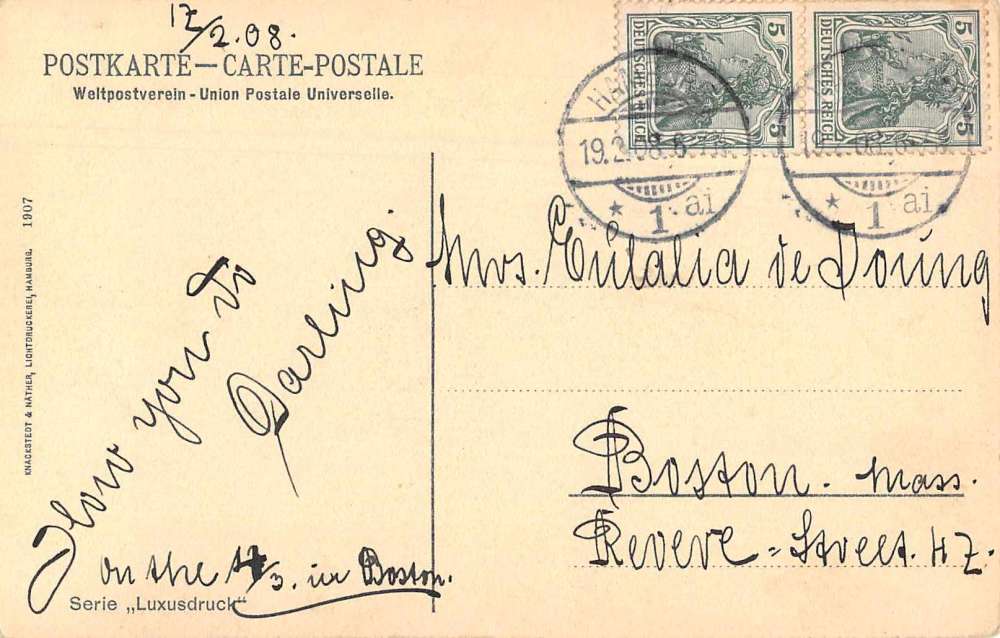 17/2.08.
POSTKARTE — CARTE-POSTALE
Weltpostverein - Union Postale Universelle.
DEUTSCHES REICH
5 5
DEUTSCHES REICH
5 5
19.2.08.6
* 1 ai
* 1 ai
KNACKSTEDT & NÄTHER, LICHTDRUCKEREI, HAMBURG. 1907
How you do
Darling.
on the /3. in Boston.
Serie „Luxusdruck“
Mrs. Eulalia de Joung
Boston. Mass.
Revere-Street. 42.